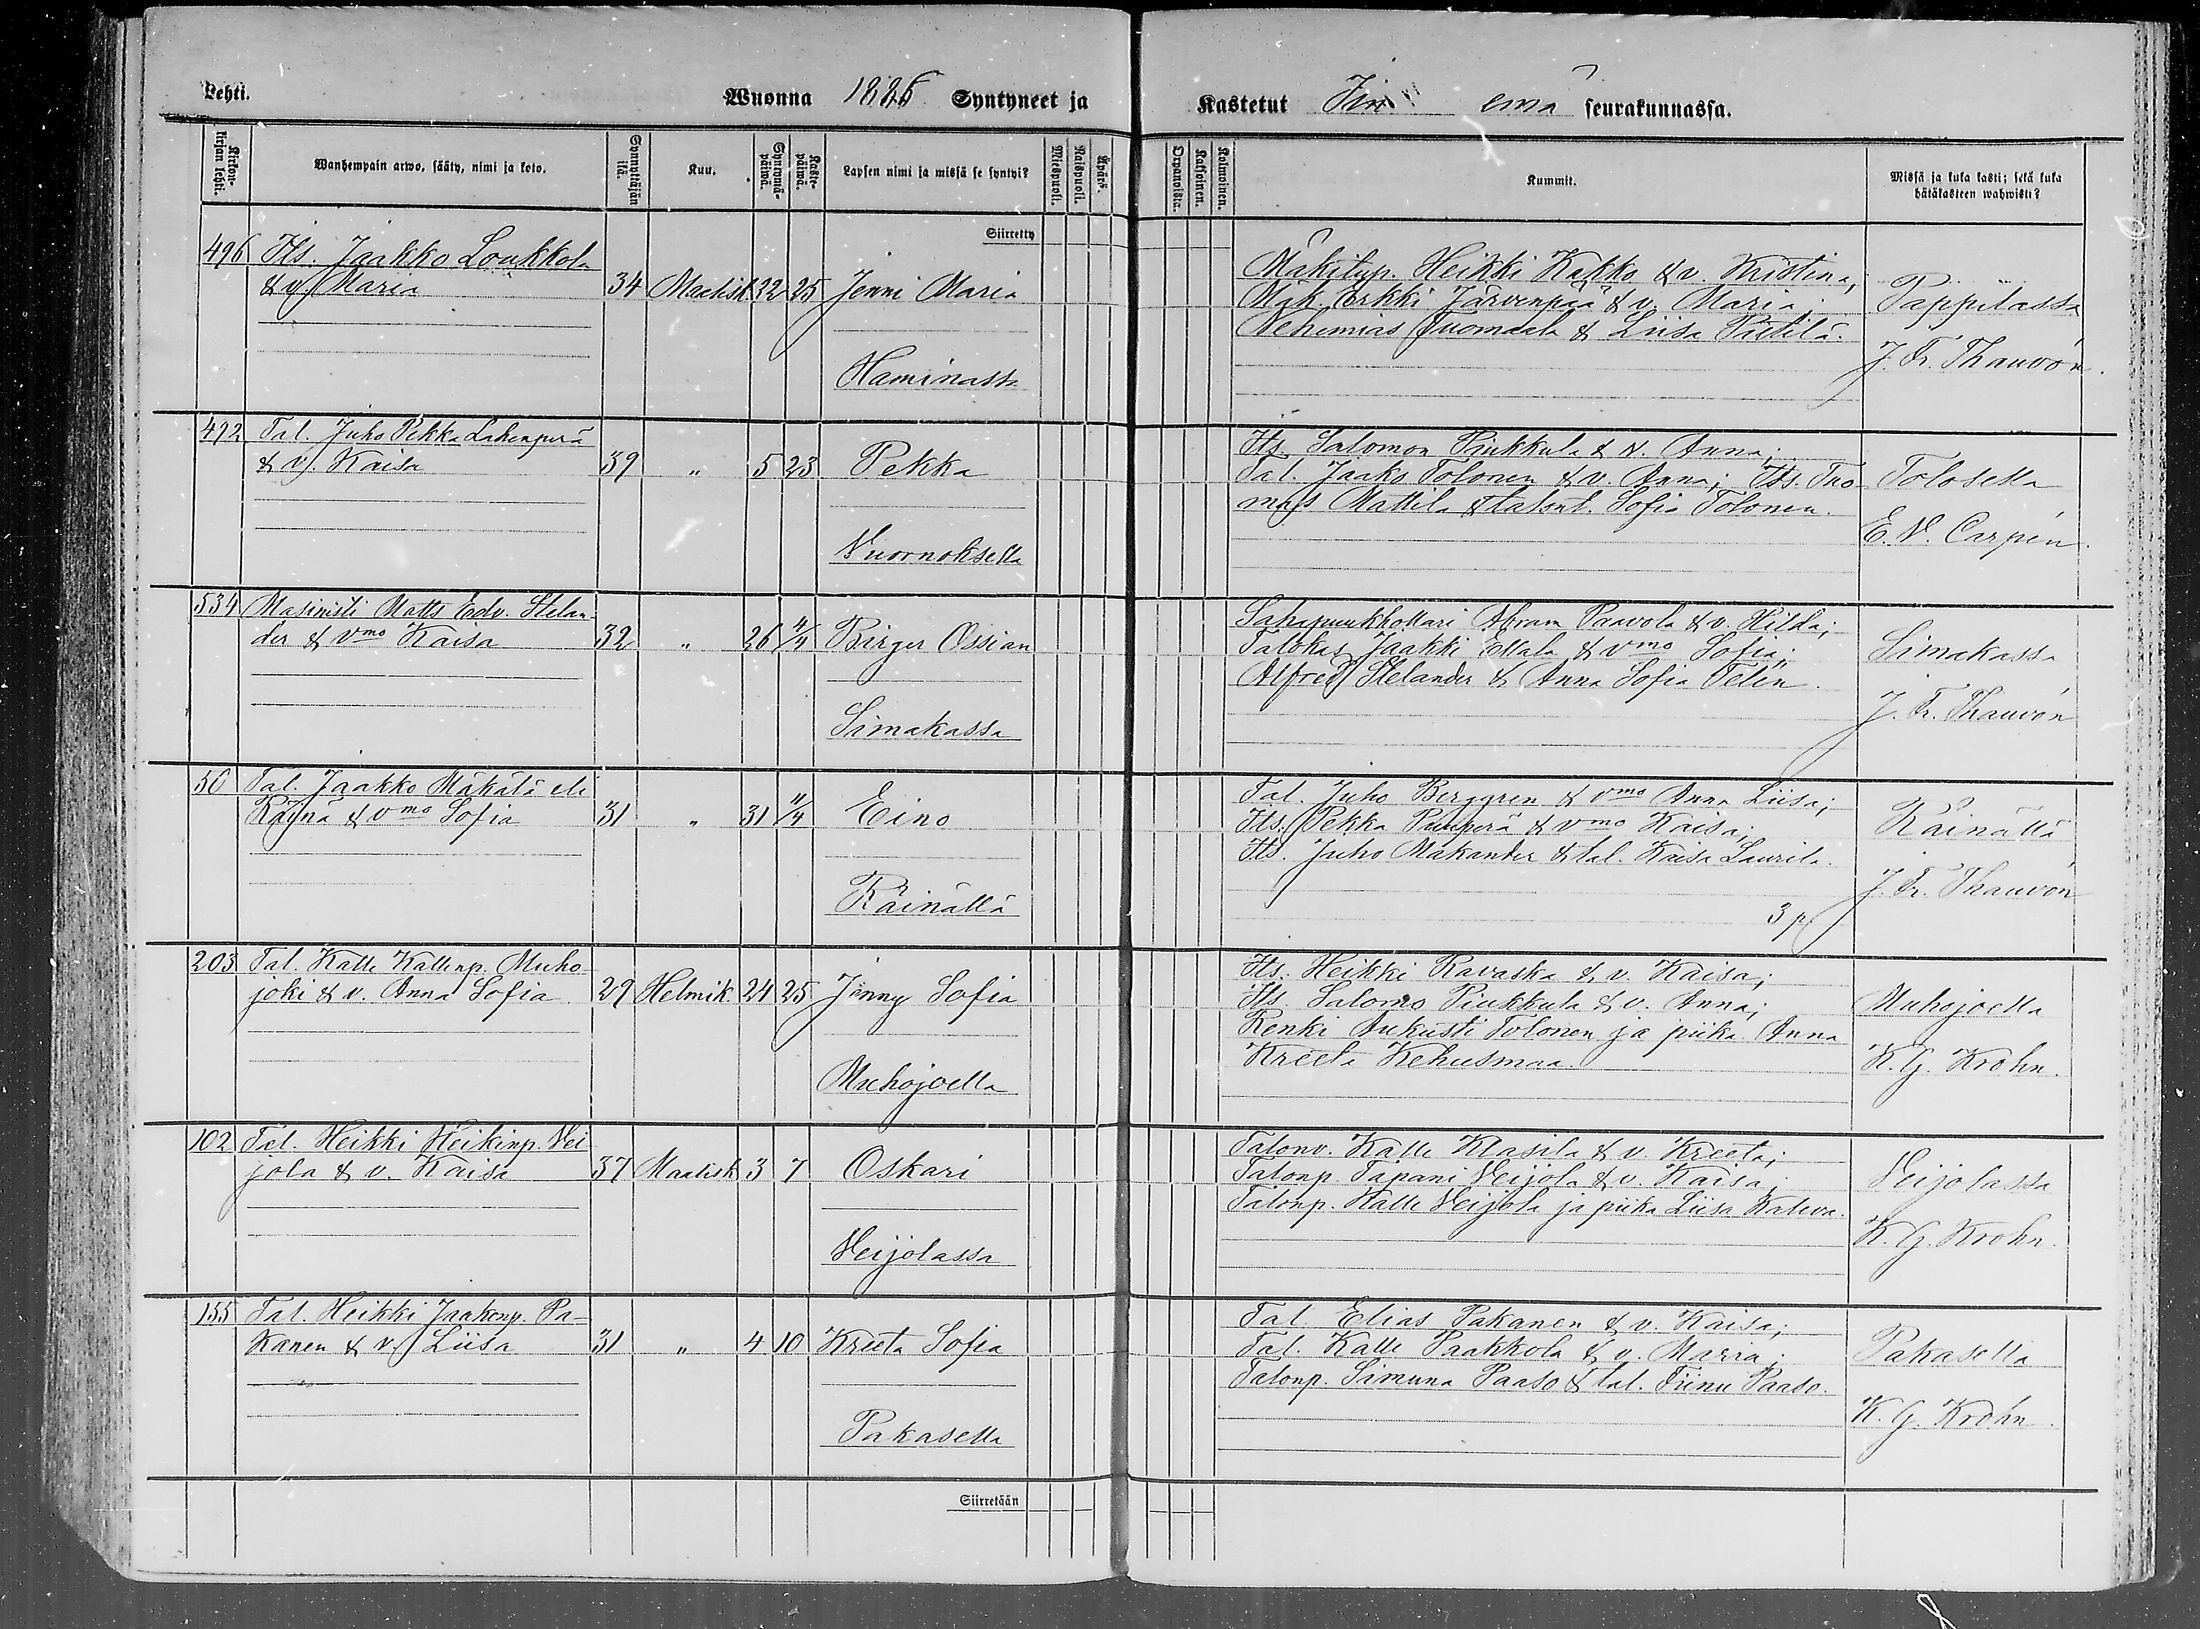 Lehti. Wuonna 1886 Syntyneet ja
Kastetut Iin emä seurakunnassa.
Kirkonkirjan lehti. Wanhempain arwo, sääty, nimi ja koto. Synnyttäjän ikä. Kuu. Syntymäpäivä. Kastepäivä. Lapsen nimi ja missä se syntyi? Miespuoli. Naispuoli. Äpärä.
Orpanoista. Kaksoinen. Kolmoinen. Kummit. Missä ja kuka kasti; sekä kuka hätäkasteen wahwisti?
Siirretty
496 Its. Jaakko Loukkola
& v. Maria 34 Maalisk 22 25 Jenni Maria
Haminassa
Mäkitup. Heikki Kakko & v. Kristina;
Mäk. Erkki Järvenpää & v. Maria;
Nehemias Tuomaala & Liisa Päätilä.
Pappilassa
J. Fr. Thauvón.
492 Tal. Juho Pekka Lahenperä
& v. Kaisa 39 " 5 23 Pekka
Vuornoksella
Its. Salomon Piukkula & v. Anna;
Tal. Jaako Tolonen & v. Anna; Its. Tuo
mas Mattila & talont. Sofia Tolonen.
Tolosella
E. V. Carpén.
534 Masinisti Matts Edv. Stelan-
der & vmo Kaisa 32 " 26 4/4 Birger Ossian
Simakassa
Sahapuukhollari Abram Paavola & v. Hilda;
Talokas Jaakki Ellala & vmo Sofia;
Alfred Stelander & Anna Sofia Telin.
Simakassa
J. Fr. Thauvón
50 Tal. Jaakko Mäkälä eli
Räinä & vmo Sofia 31 " 31 11/4 Eino
Räinällä
Tal. Juho Berggren & vmo Anna Liisa;
Its. Pekka Puuperä & vmo Kaisa;
Its. Juho Makander & tal. Kaisa Laurila.
3 p
Räinällä
J. Fr. Thauvón
203 Tal. Kalle Kallenp. Muho-
joki & v. Anna Sofia 29 Helmik. 24 25 Jenny Sofia
Muhojoella
Its. Heikki Ravaska & v. Kaisa;
Its. Salomo Piukkula & v. Anna;
Renki Aukusti Tolonen ja piika Anna
Kreeta Kehusmaa.
Muhojoella
K. G. Krohn.
102 Tal. Heikki Heikinp. Vei-
jola & v. Kaisa 37 Maalisk 3 7 Oskari
Veijolassa
Talonv. Kalle Klasila & v. Kreeta;
Talonp. Tapani Veijola & v. Kaisa;
Talonp. Kalle Veijola ja piika Liisa Kaleva.
Veijolassa
K. G. Krohn.
155 Tal. Heikki Jaakonp. Pa-
kanen & v. Liisa 31 " 4 10 Kreeta Sofia
Pakasella
Tal. Elias Pakanen & v. Kaisa;
Tal. Kalle Paakkola & v. Maria;
Talonp. Simuna Paaso & tal. Tiinu Paaso.
Pakasella
K. G. Krohn.
Siirretään